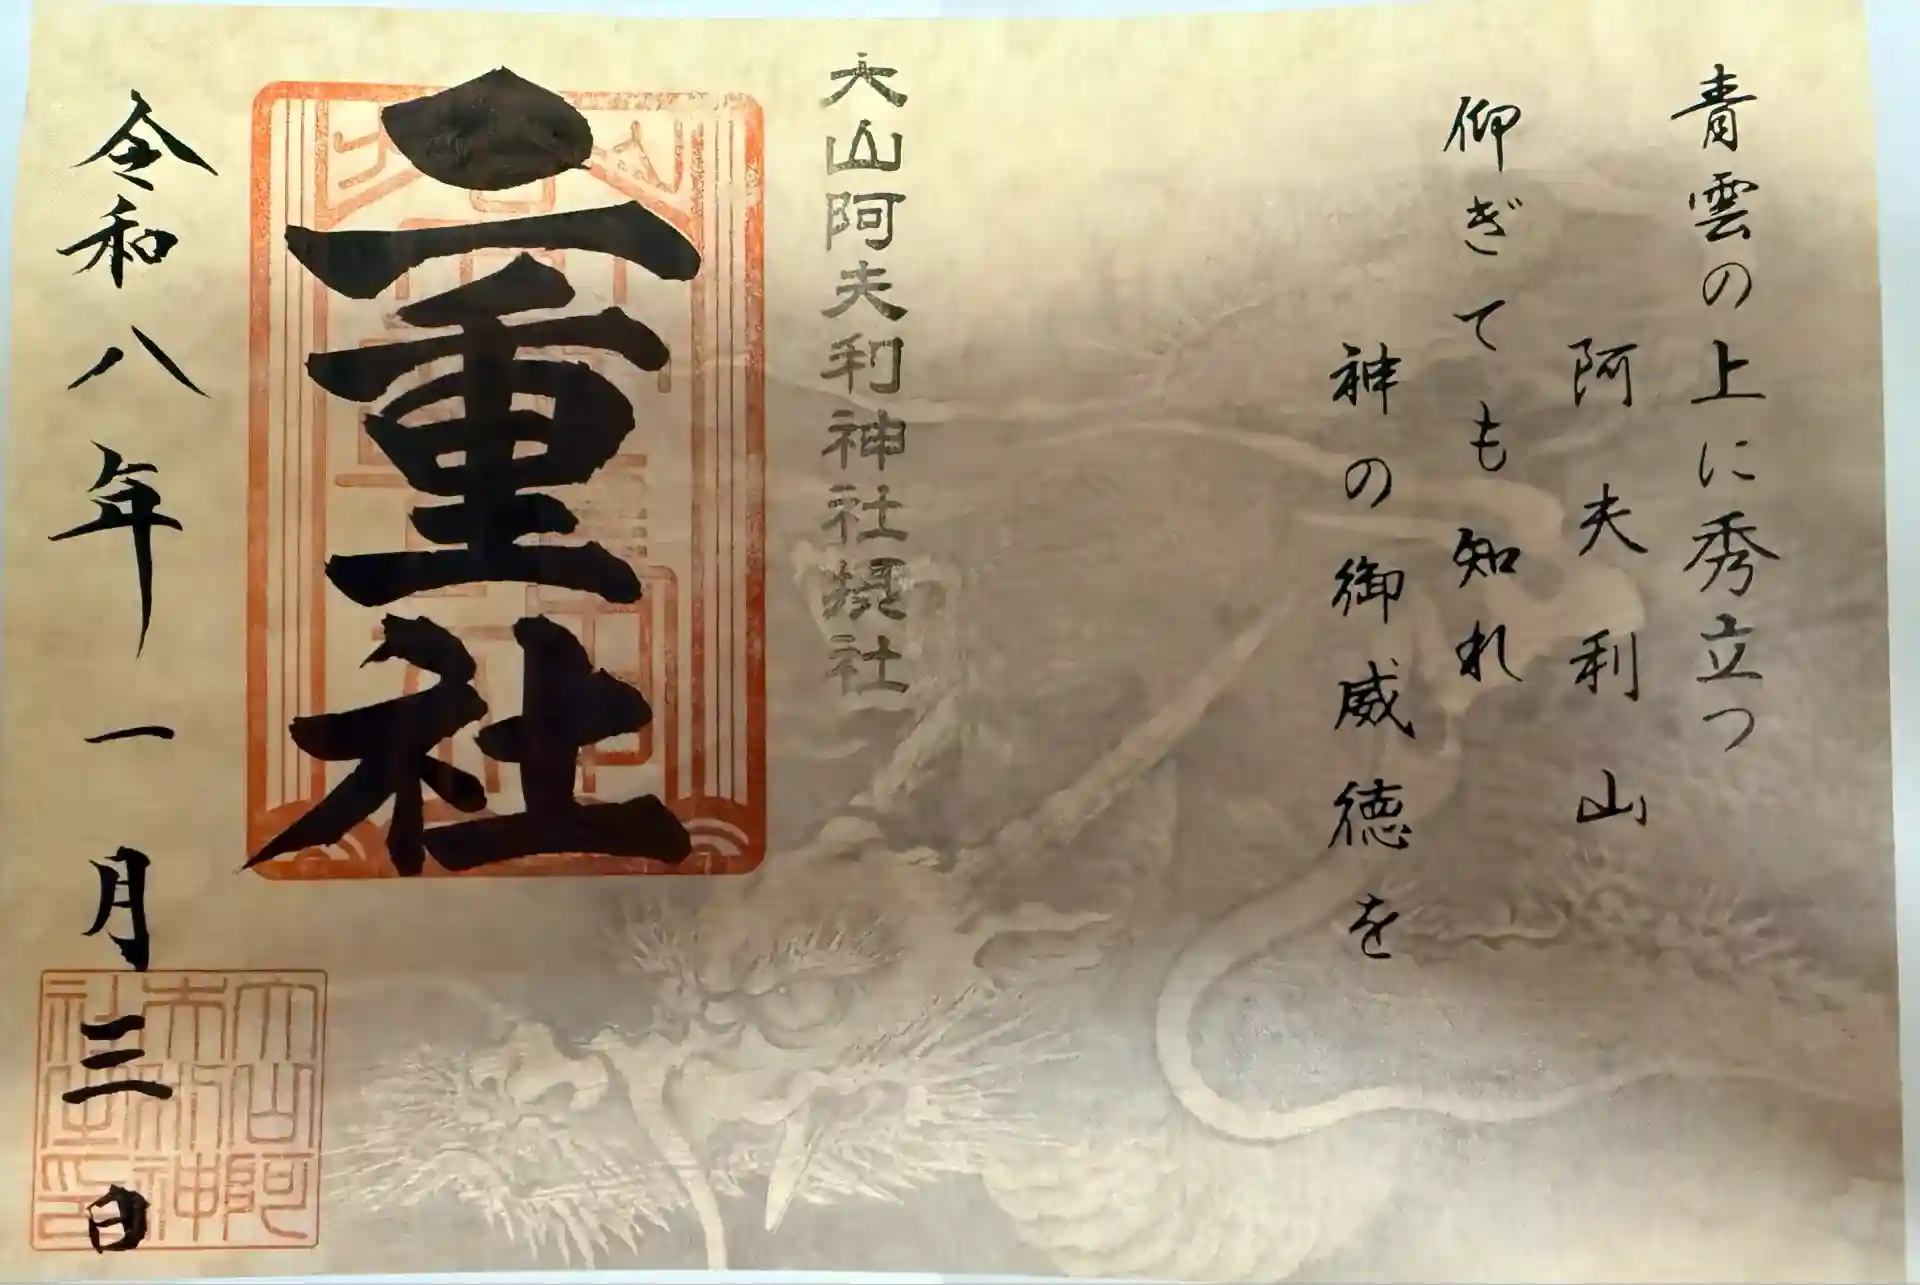 青雲の上に秀立つ
阿夫利山
仰ぎても知れ
神の御威徳を
大山阿夫利神社摂社
二重社
令和八年一月三日
大山阿
夫利神
社之印